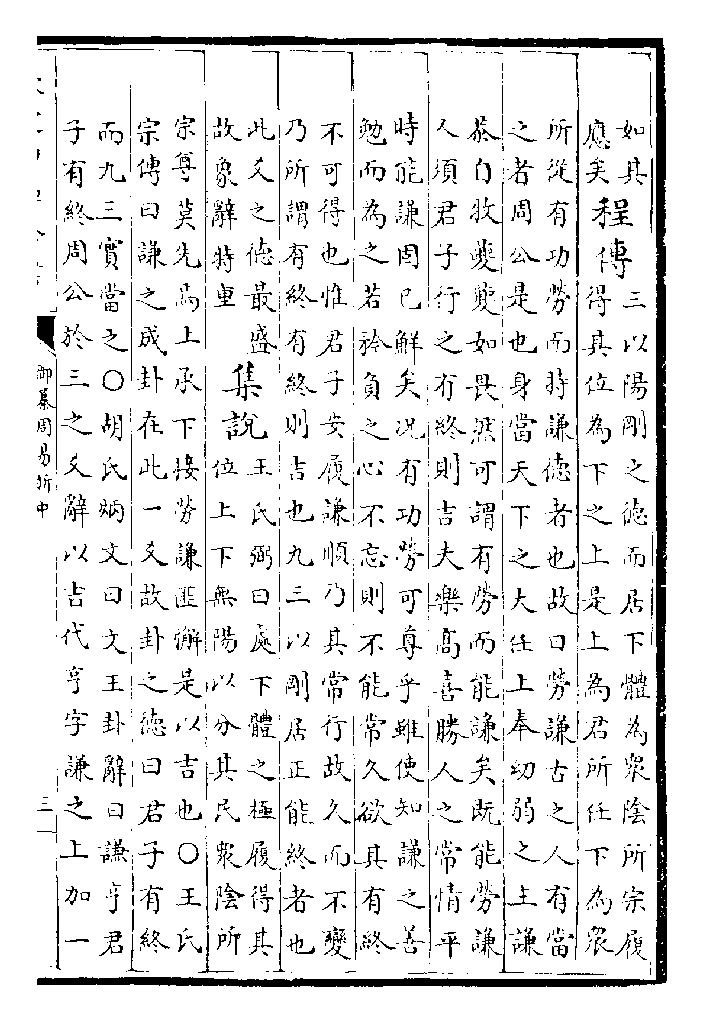 如其
應矣程傳三以陽剛之德而居下體為眾陰所宗履
得其位為下之上是上為君所任下為眾
所從有功勞而持謙德者也故曰勞謙古之人有當
之者周公是也身當天下之大任上奉幼弱之主謙
恭自牧夔夔如畏然可謂有勞而能謙矣既能勞謙
人須君子行之有終則吉夫樂高喜勝人之常情平
時能謙固已鮮矣况有功勞可尊乎雖使知謙之善
勉而為之若矜負之心不忘則不能常久欲其有終
不可得也惟君子安履謙順乃其常行故久而不變
乃所謂有終有終則吉也九三以剛居正能終者也
此爻之德最盛
故象辭特重集說王氏弼曰處下體之極履得其
位上下無陽以分其民眾陰所
宗尊莫先焉上承下接勞謙匪懈是以吉也○王氏
宗傳曰謙之成卦在此一爻故卦之德曰君子有終
而九三實當之○胡氏炳文曰文王卦辭曰謙亨君
子有終周公於三之爻辭以吉代亨字謙之上加一
御纂周易折中
三